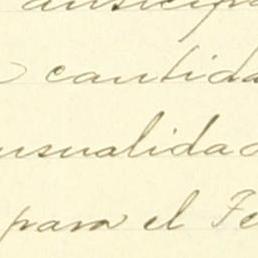 anticipa
cantida
nsualidad
para el Fe